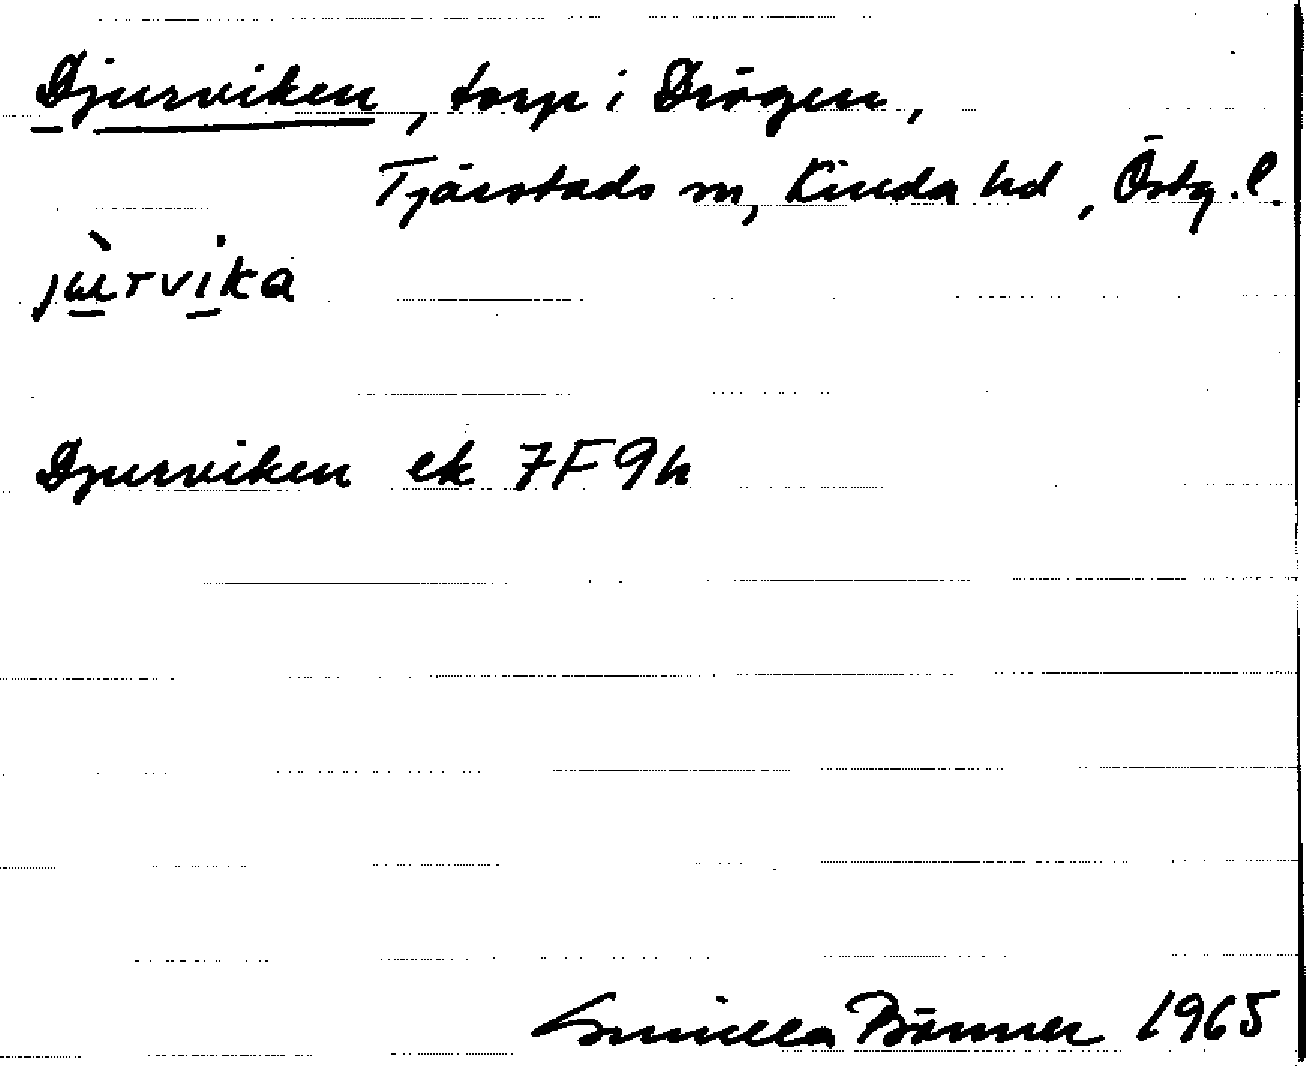 Djurviken, torp i Drögen,
Tjärstads sn, Kinda hd, Östg.l.
jùrvika
Djurviken ek 7F9h
Gunilla 1965